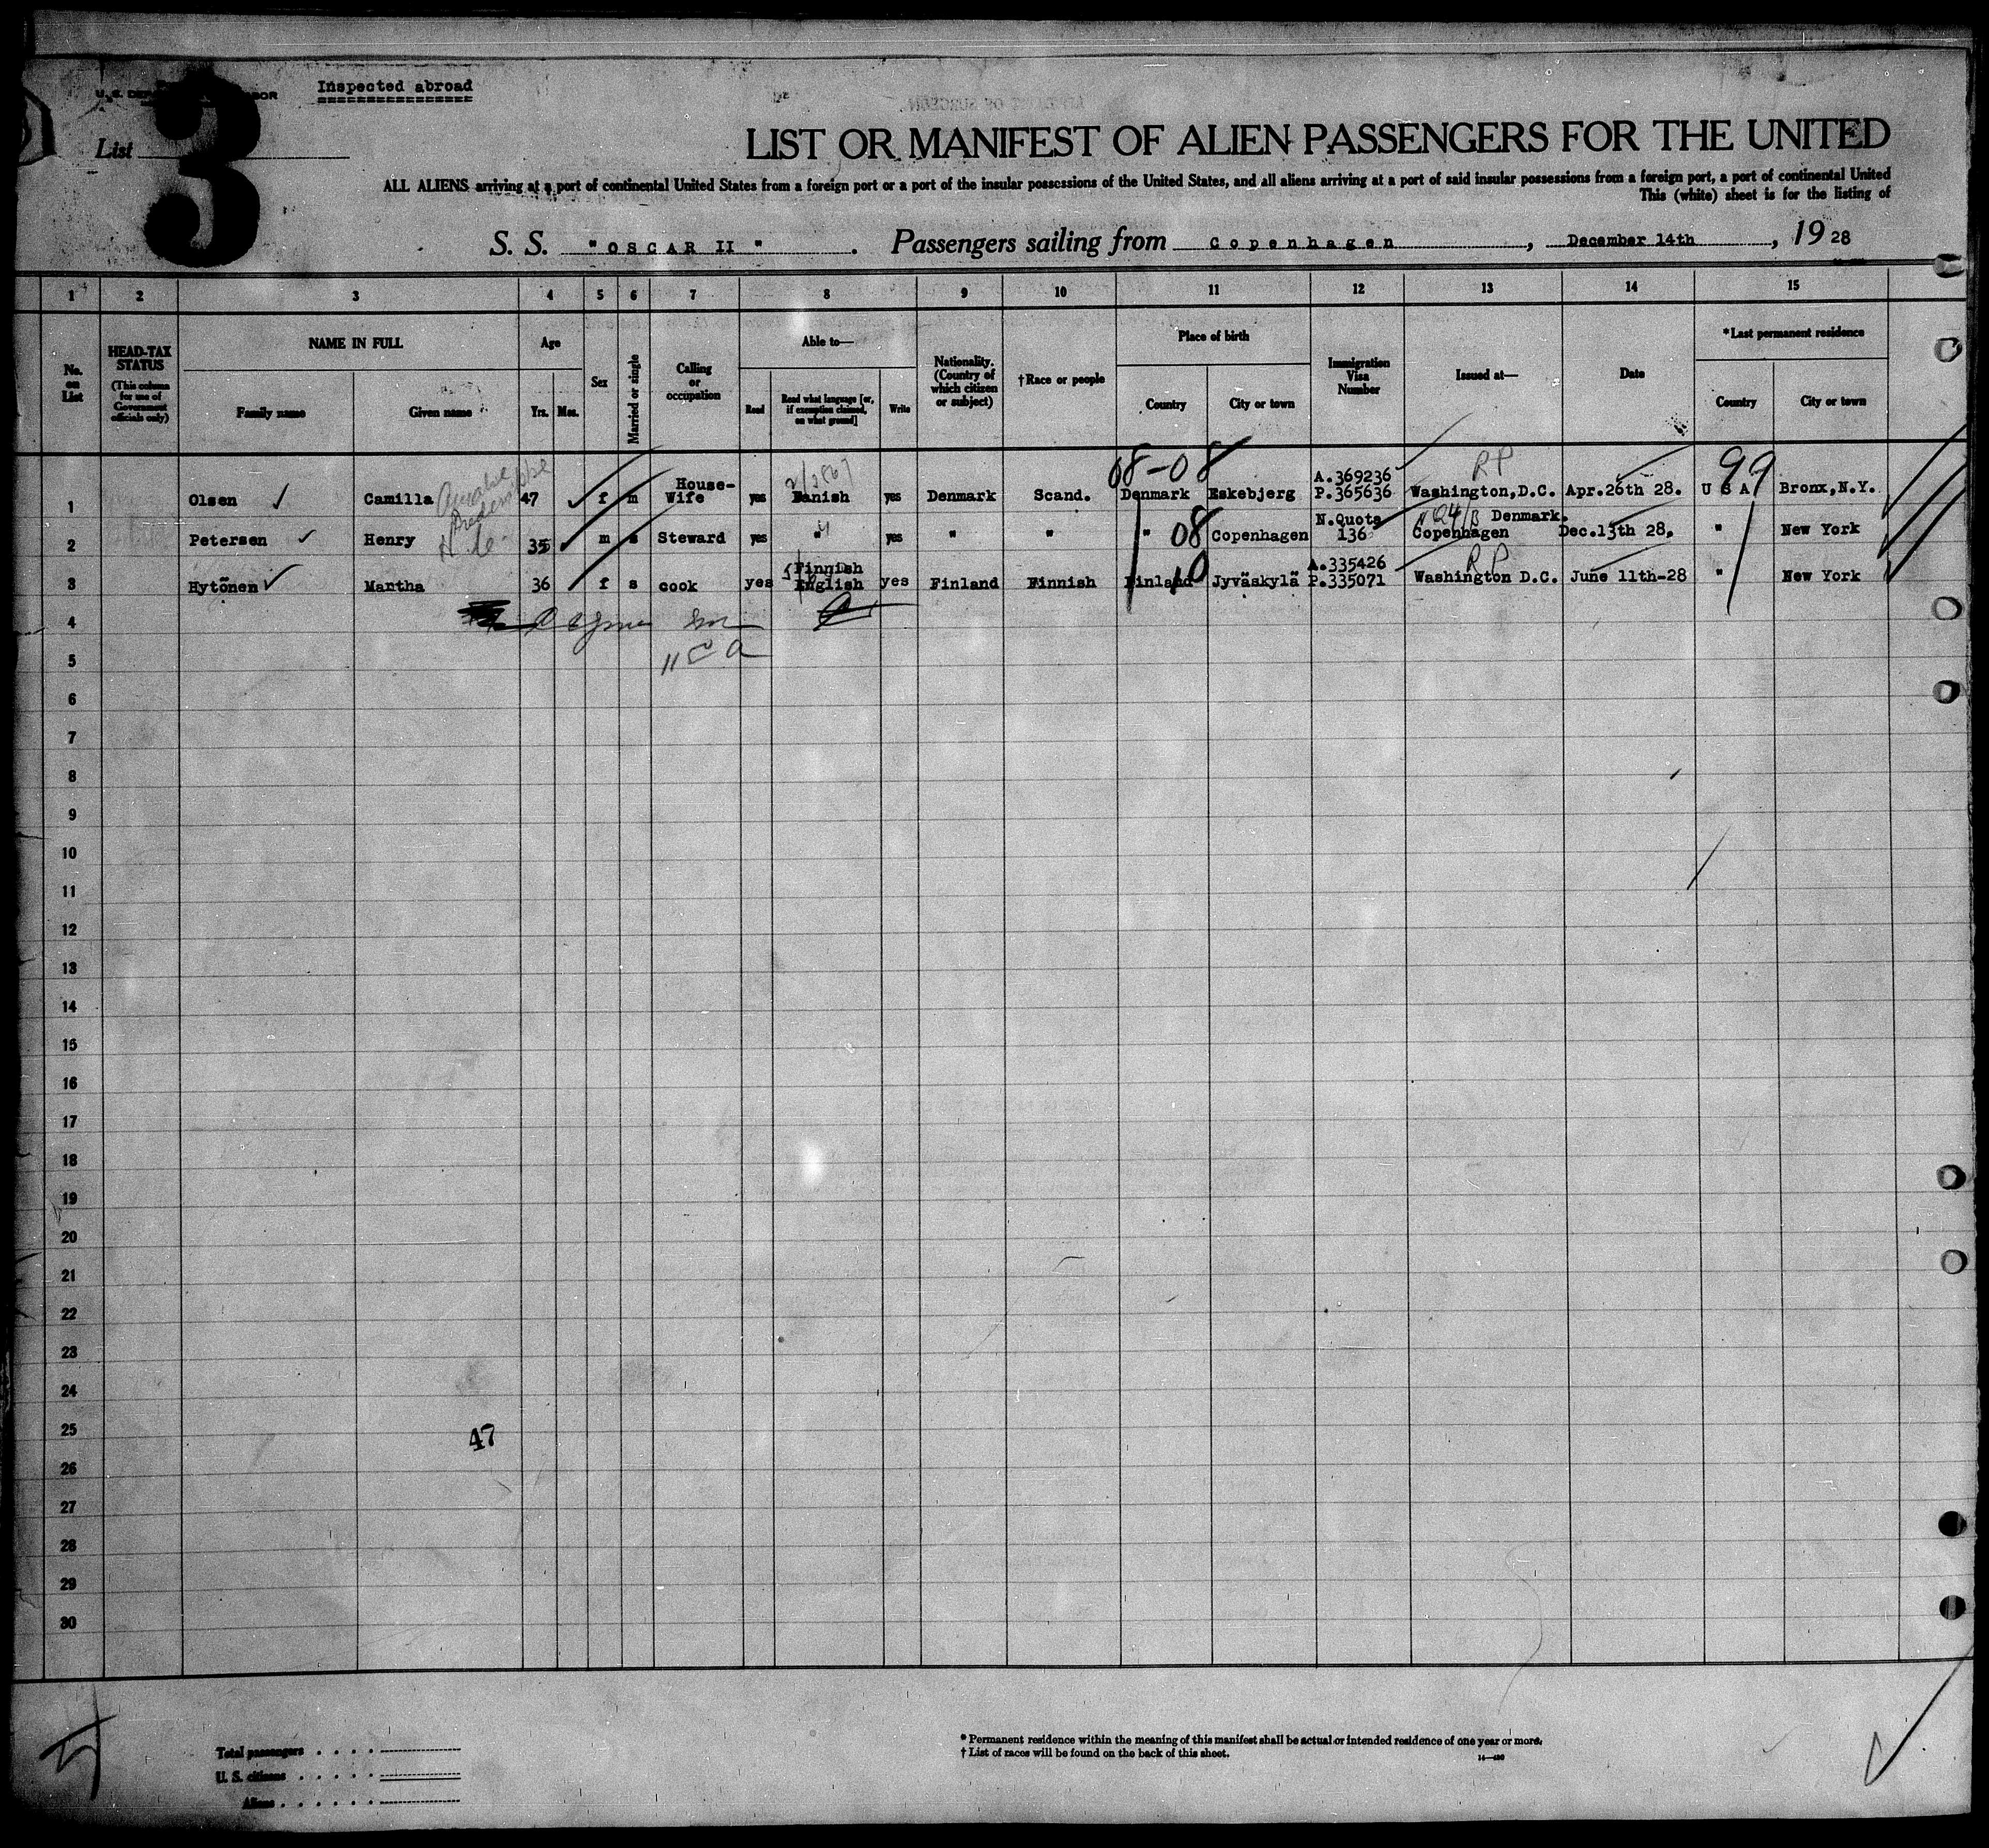 Inspected abroad
List 3
LIST OR MANIFEST OF ALIEN PASSENGERS FOR THE UNITED
ALL ALIENS arriving at a port of continental United States from a foreign port or a port of the insular possessions of the United States, and all aliens arriving at a port of said insular possessions from a foreign port, a port of continental United
This (white) sheet is for the listing of
S. S. "OSCAR II". Passengers sailing from Copenhagen, December 14th, 1928
1 2 3 4 5 6 7 8 9 10 11 12 13 14 15
No. on List
HEAD-TAX STATUS (This column for use of Government officials only)
NAME IN FULL
Family name
Given name
Age
Yrs. Mos.
Sex
Married or single
Calling or occupation
Able to—
Read
Read what language [or, if exemption claimed, on what ground]
Write
Nationality. (Country of which citizen or subject)
†Race or people
Place of birth
Country
City or town
Immigration Visa Number
Issued at—
Date
*Last permanent residence
Country
City or town
08-08 RP 99
1 Olsen Camilla 47 f m House-Wife yes Danish yes Denmark Scand. Denmark Eskebjerg A.369236 P.365636 Washington,D.C. Apr.26th 28. U S A Bronx,N.Y.
2 Petersen Henry 35 m s Steward yes " yes " " " 08 Copenhagen N.Quota 136 Copenhagen Denmark. Dec.13th 28. " New York
3 Hytönen Martha 36 f s cook yes Finnish English yes Finland Finnish Finland 10 Jyväskylä A.335426 P.335071 RP Washington D.C. June 11th-28 " New York
4
5
6
7
8
9
10
11
12
13
14
15
16
17
18
19
20
21
22
23
24
25
47
26
27
28
29
30
Total passengers
U. S. citizens
Aliens
* Permanent residence within the meaning of this manifest shall be actual or intended residence of one year or more.
† List of races will be found on the back of this sheet.